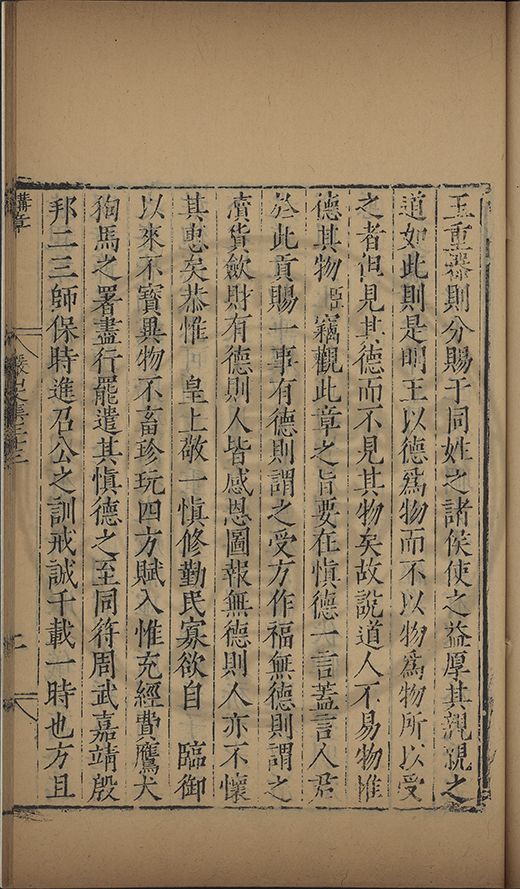 玉重器則分賜于同姓之諸侯使之益厚其親親之
道如此則是明王以德為物而不以物為物所以受
之者但見其德而不見其物矣故說道人不易物惟
德其物臣竊觀此章之旨要在慎德一言蓋言人君
於此貢賜一事有德則謂之受方作福無德則謂之
瀆貨斂財有德則人皆感恩圖報無德則人亦不懷
其忠矣恭惟 皇上敬一慎修勤民寡欲自 臨御
以來不寶異物不畜珍玩四方賦入惟充經費鷹犬
狗馬之署盡行罷遣其慎德之至同符周武嘉靖殷
邦二三師保時進召公之訓戒誠千載一時也方且
講章